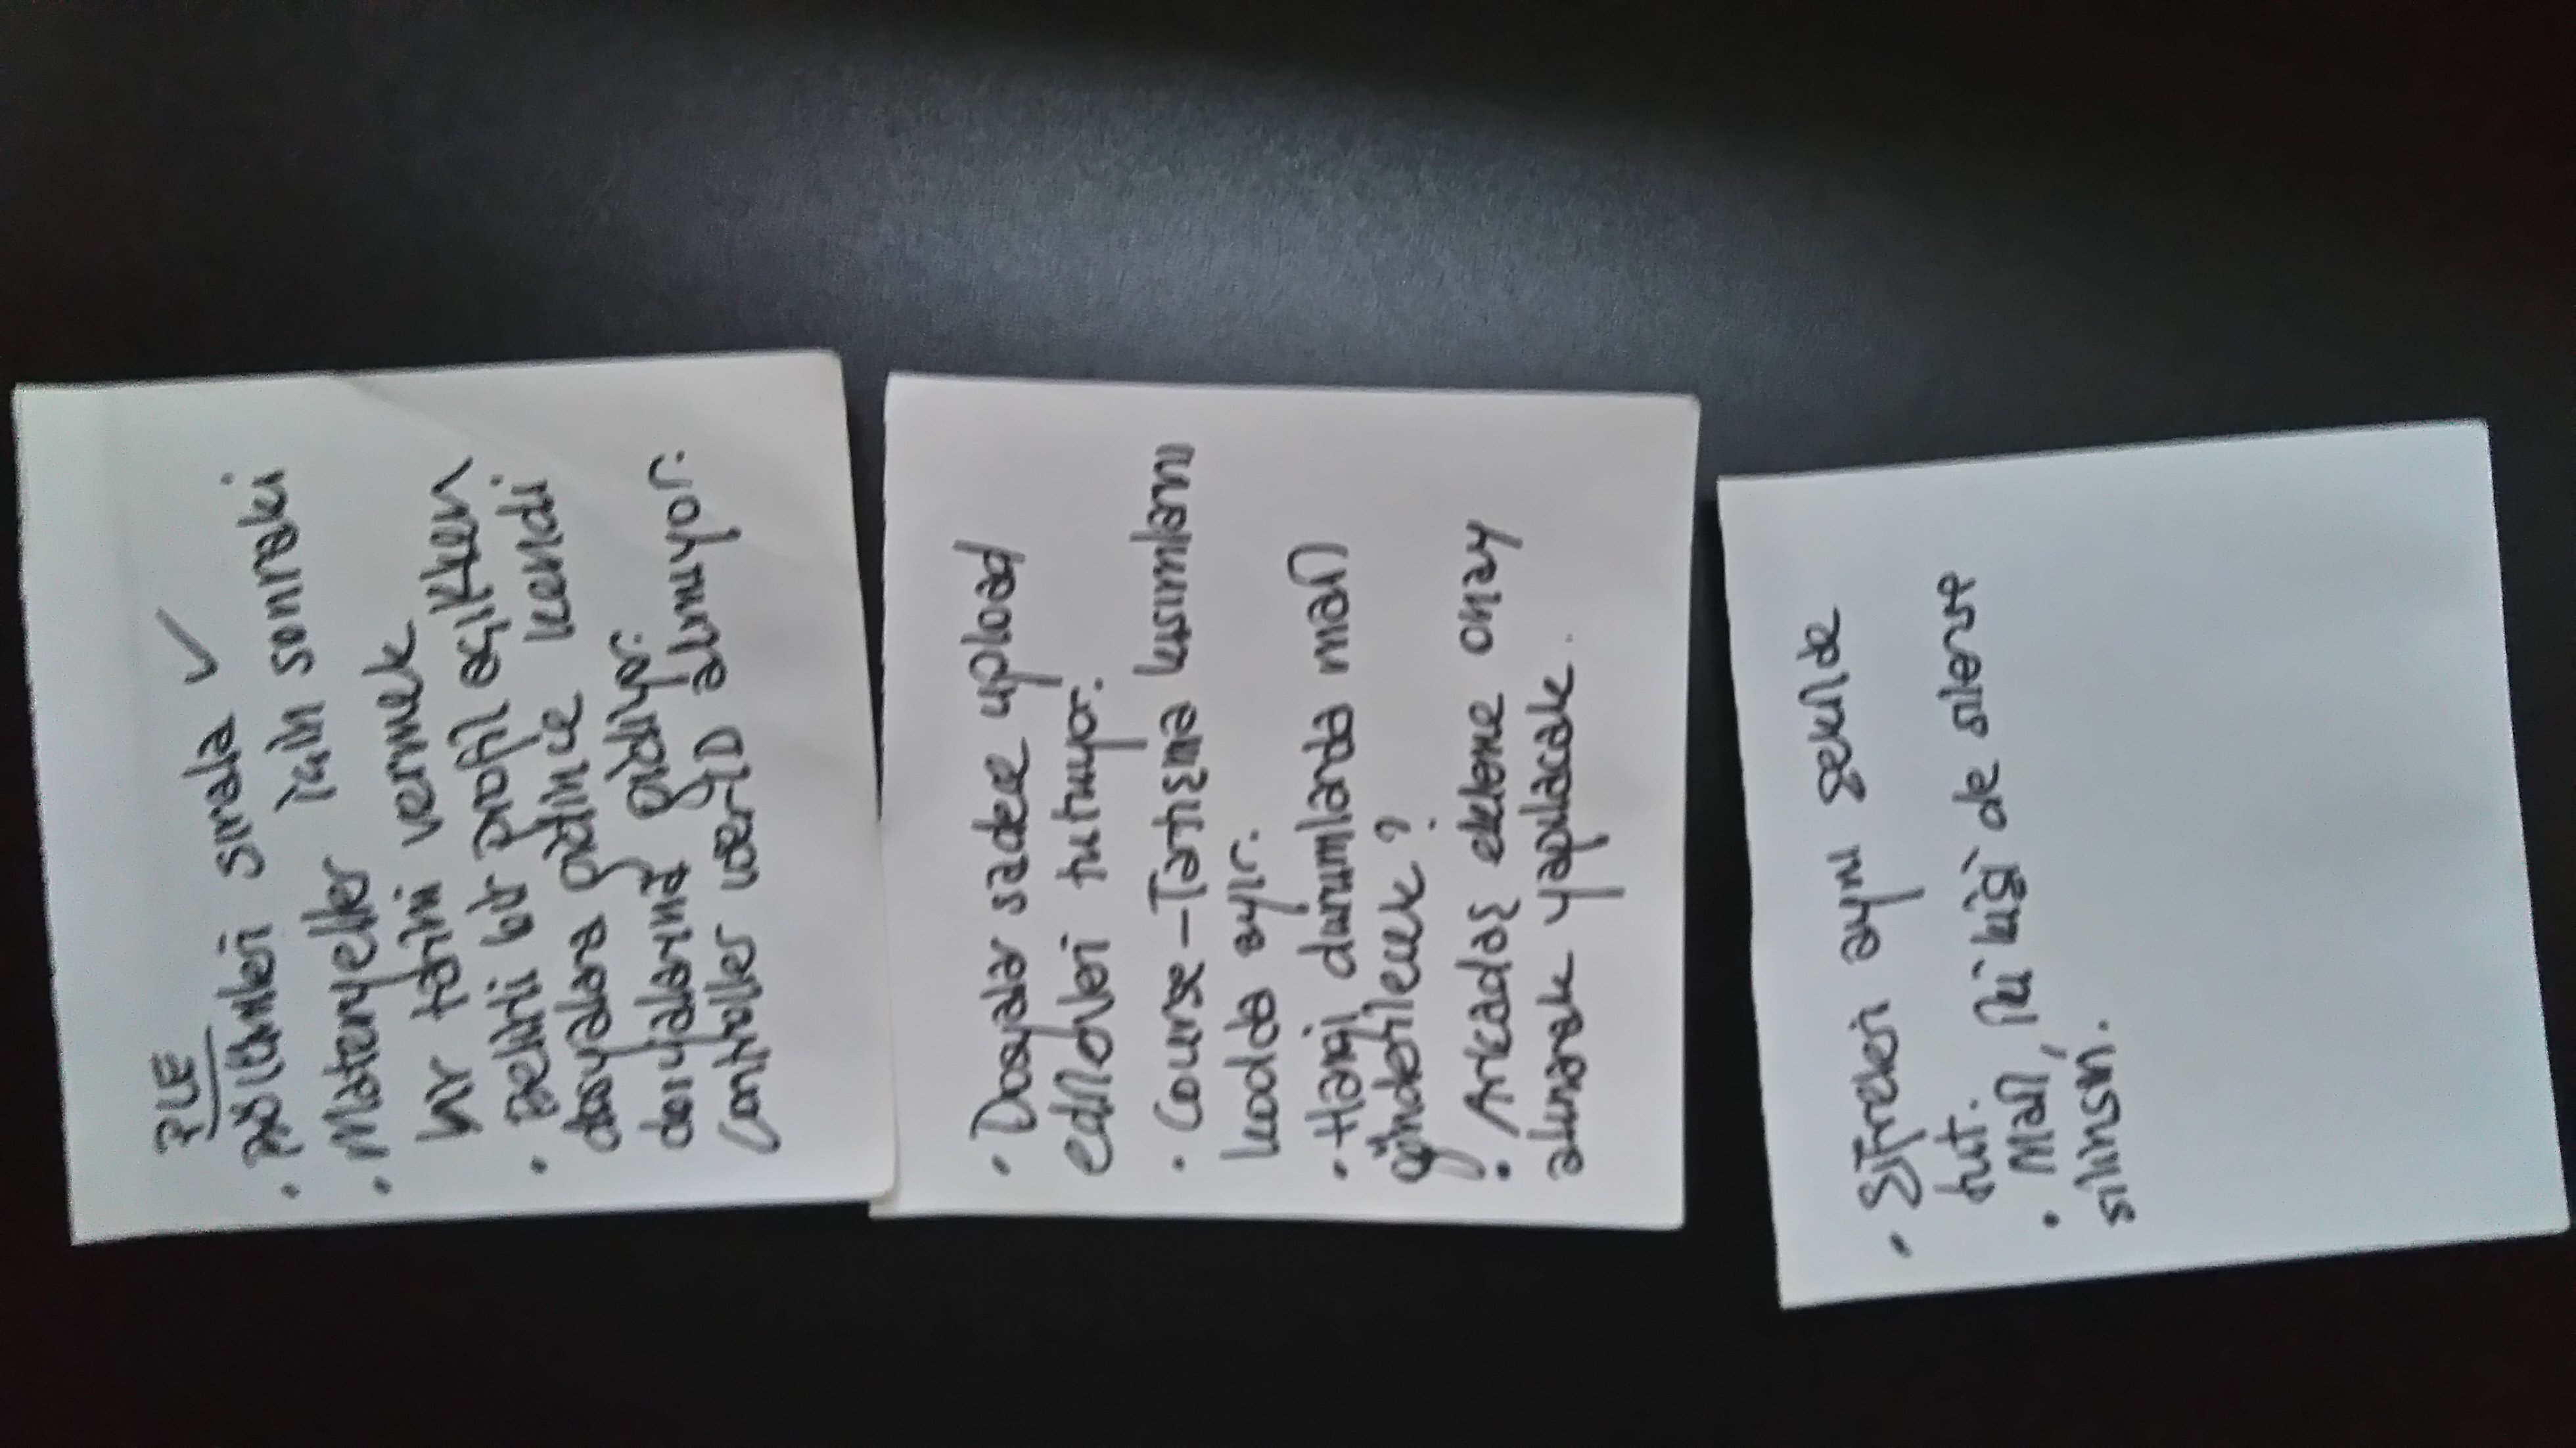 PLE
• Bölümleri sırala ✓
• Materyeller için sonraki
bir tarihi vermek
• Belirli bir profil açıkken
dosyalara gidince kendi
dosyalarına gidiyor.
Controller userID almıyor.
• Dosyalar sadece upload
edilenleri tutuyor.
• Course-Tartışma kısımlarını
kodda ayır.
• Hangi durumlarda mail
gönderilecek?
• Arkadaş ekleme onay
alınarak yapılacak.
• Şifreleri aynı şekilde
tut.
• Mail, iki kişi de silerse
silinsin.